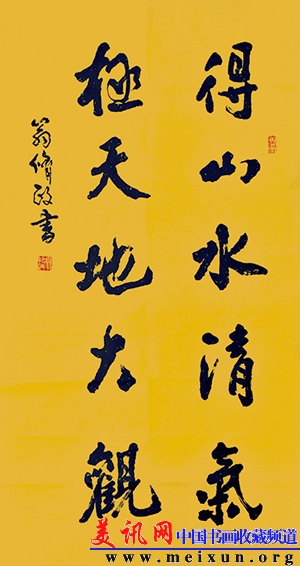 得山水清氣
極天地大觀
翁脩政書
美讯网 中国书画收藏频道
www.meixun.org